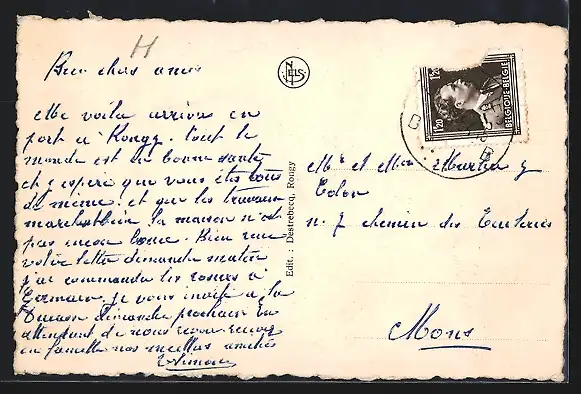 H
Bien chers amis
Me voilà arrivée en
port à Rongy. tout le
monde est en bonne santé
et j espère que vous êtes tous
de même. et que les travaux
marchent bien la maison n'est
pas encore louée. Bien reçue
votre lettre dimanche matin
j'ai commandé les roses à
Germain. je vous invite à la
Ducasse dimanche prochain en
attendant de vous revoir recevez
en famille nos meilles amitiés
Simon
NELS
Edit. : Destrebecq, Rongy
1.20
1.20
BELGIQUE BELGIE
B
Mr et Mme Martin
n. 7 chemin des
Mons